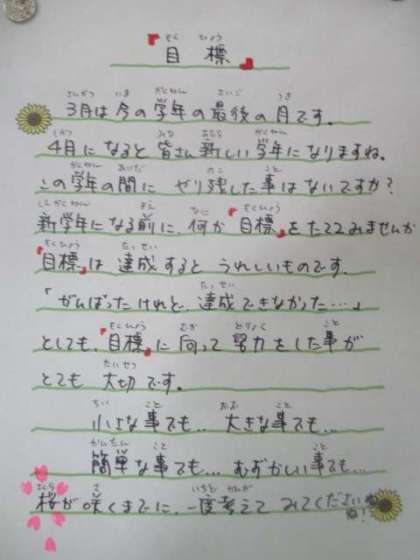 『目標』
3月は今の学年の最後の月です。
4月になると皆さん新しい学年になりますね。
この学年の間にやり残した事はないですか?
新学年になる前に、何か『目標』をたててみませんか
『目標』は達成するとうれしいものです。
「がんばったけれど、達成できなかった…」
としても、『目標』に向って努力をした事が
とても大切です。
小さな事でも… 大きな事でも…
簡単な事でも… むずかしい事でも…
桜が咲くまでに、一度考えてみてくださいね!